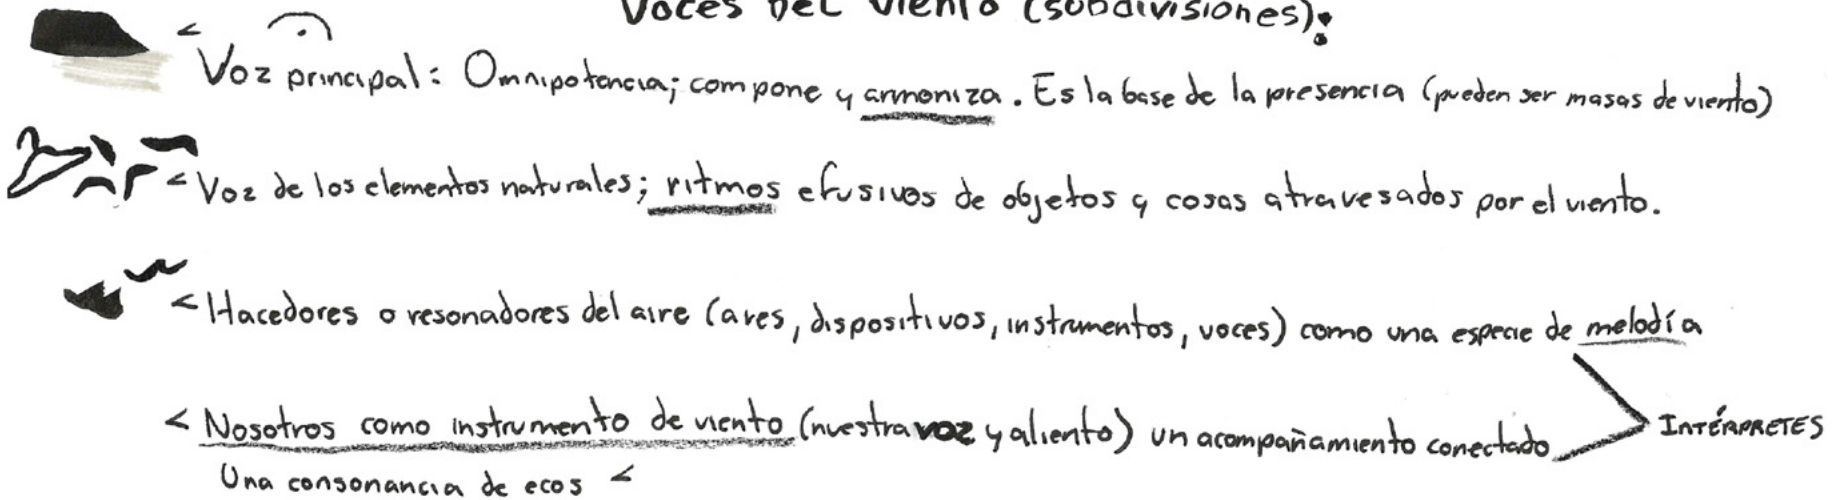 Voces del viento (subdivisiones):
< Voz principal: Omnipotencia; compone y armoniza. Es la base de la presencia (pueden ser masas de viento)
< Voz de los elementos naturales; ritmos efusivos de objetos y cosas atravesados por el viento.
< Hacedores o resonadores del aire (aves, dispositivos, instrumentos, voces) como una especie de melodía
< Nosotros como instrumento de viento (nuestra voz y aliento) un acompañamiento conectado
INTÉRPRETES
Una consonancia de ecos <